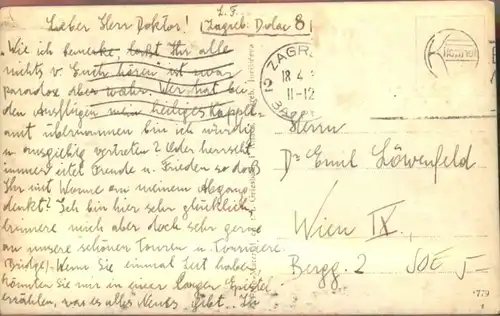 L. F.
Lieber Herr Doktor! (Zagreb. Dolac 8)
"Wie ich bemerke, laßt Ihr alle
nichts v. Euch hören ist zwar
paradox aber wahr. Wer hat bei
den Ausflügen mein heiliges Kappel-
amt übernommen bin ich würdig
u. ausgiebig vertreten? Oder herrscht
immer eitel Freude u. Frieden so daß
Ihr mit Wonne an meinem Abgang
denkt? Ich bin hier sehr glücklich,
erinnere mich aber doch sehr gerne
an unsere schönen Touren u. Tourniere
(Bridge). Wenn Sie einmal Zeit haben,
könnten Sie mir in einer langen Epistel
erzählen, was es alles Neues gibt. Ihr
2 ZAGR
18 4
11-12
Herrn
Dr Emil Löwenfeld
Wien IX,
Bergg. 2
779